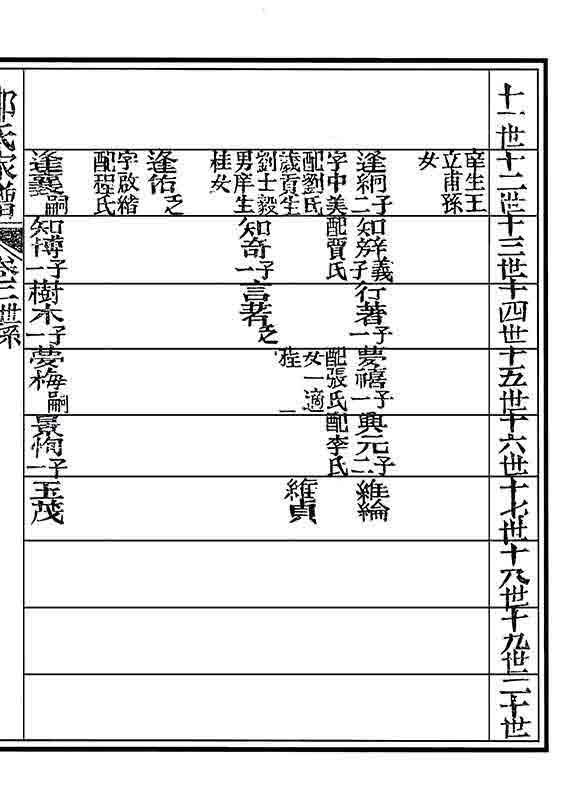 十一世
十二世
十三世
十四世
十五世
十六世
十七世
十八世
十九世
二十世
庠生王
立甫孫
女
逢絅子二
字中美
配劉氏
歲貢生
劉士毅
男庠生
桂女
逢佑乏
字啟緒
配程氏
逢義嗣
知辨義子
配賈氏
知奇子一
知博子一
行著子一
言著乏
樹木子一
夢禧子一
配張氏
女一適
夢梅嗣
興元子二
配李氏
景恂子一
維綸
維貞
玉茂
氏家譜
世系